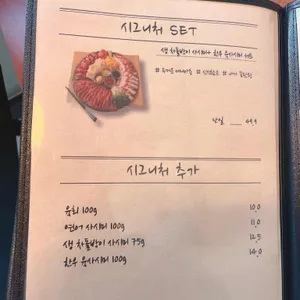 시그니처 SET
생 차돌박이 사시미와 한우 육사시미 세트
단일 ___ 49.9
시그니처 추가
육회 100g 10.0
연어 사시미 100g 11.0
생 차돌박이 사시미 75g 12.5
한우 육사시미 100g 14.0